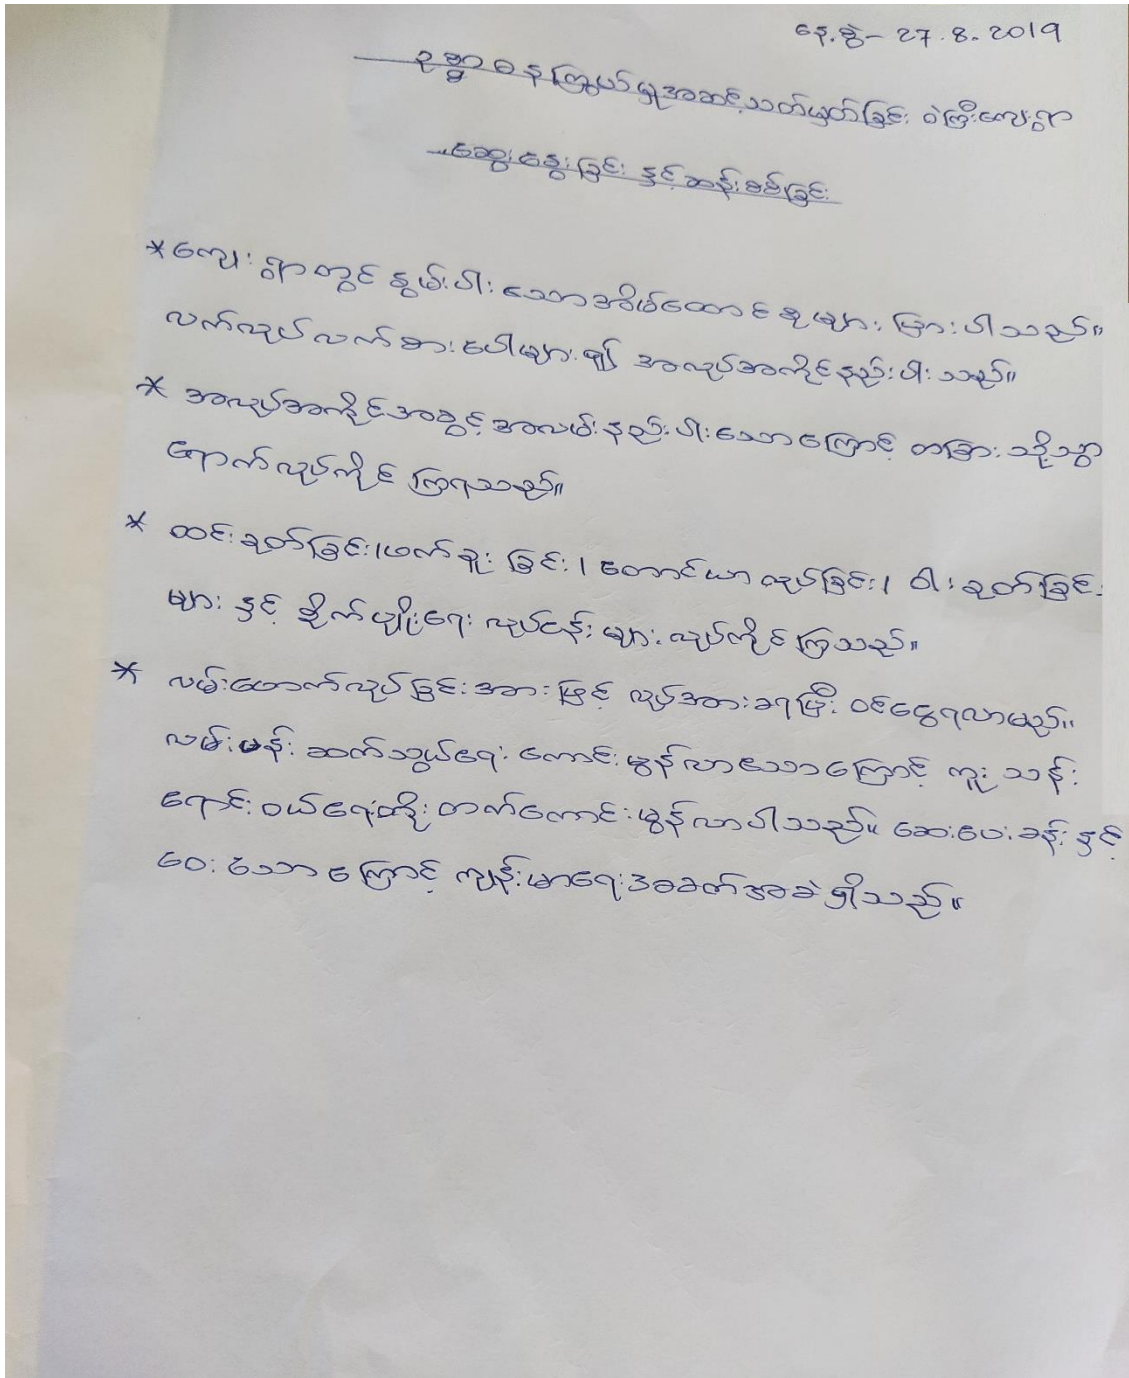 နေ့စွဲ- 27.8.2019
ဥစ္စာဓနကြွယ်ဝမှုအဆင့်သတ်မှတ်ခြင်း ဝဲကြီးကျေးရွာ
ဆွေးနွေးခြင်း နှင့် ဆန်းစစ်ခြင်း
* ကျေးရွာတွင် နွမ်းပါးသောအိမ်ထောင်စုများ များပါသည်။
လက်လုပ်လက်စားပေါများ၍ အလုပ်အကိုင်နည်းပါးသည်။
* အလုပ်အကိုင်အခွင့်အလမ်းနည်းပါးသောကြောင့် တခြားသို့သွား
ရောက်လုပ်ကိုင်ကြရသည်။
* ထင်းခုတ်ခြင်း၊ ဖက်ခူးခြင်း၊ တောင်ယာလုပ်ခြင်း၊ ဝါးခုတ်ခြင်း
များ နှင့် စိုက်ပျိုးရေး လုပ်ငန်းများ လုပ်ကိုင်ကြသည်။
* လမ်းဖောက်လုပ်ခြင်းအားဖြင့် လုပ်အားခရပြီး ဝင်ငွေရလာမည်။
လမ်းပန်း ဆက်သွယ်ရေး ကောင်းမွန်လာသောကြောင့် ကူးသန်း
ရောင်းဝယ်ရေးတို့ တက်ကောင်းမွန်လာပါသည်။ ဆေးပေးခန်း နှင့်
ဝေးသောကြောင့် ကျန်းမာရေးအခက်အခဲရှိသည်။